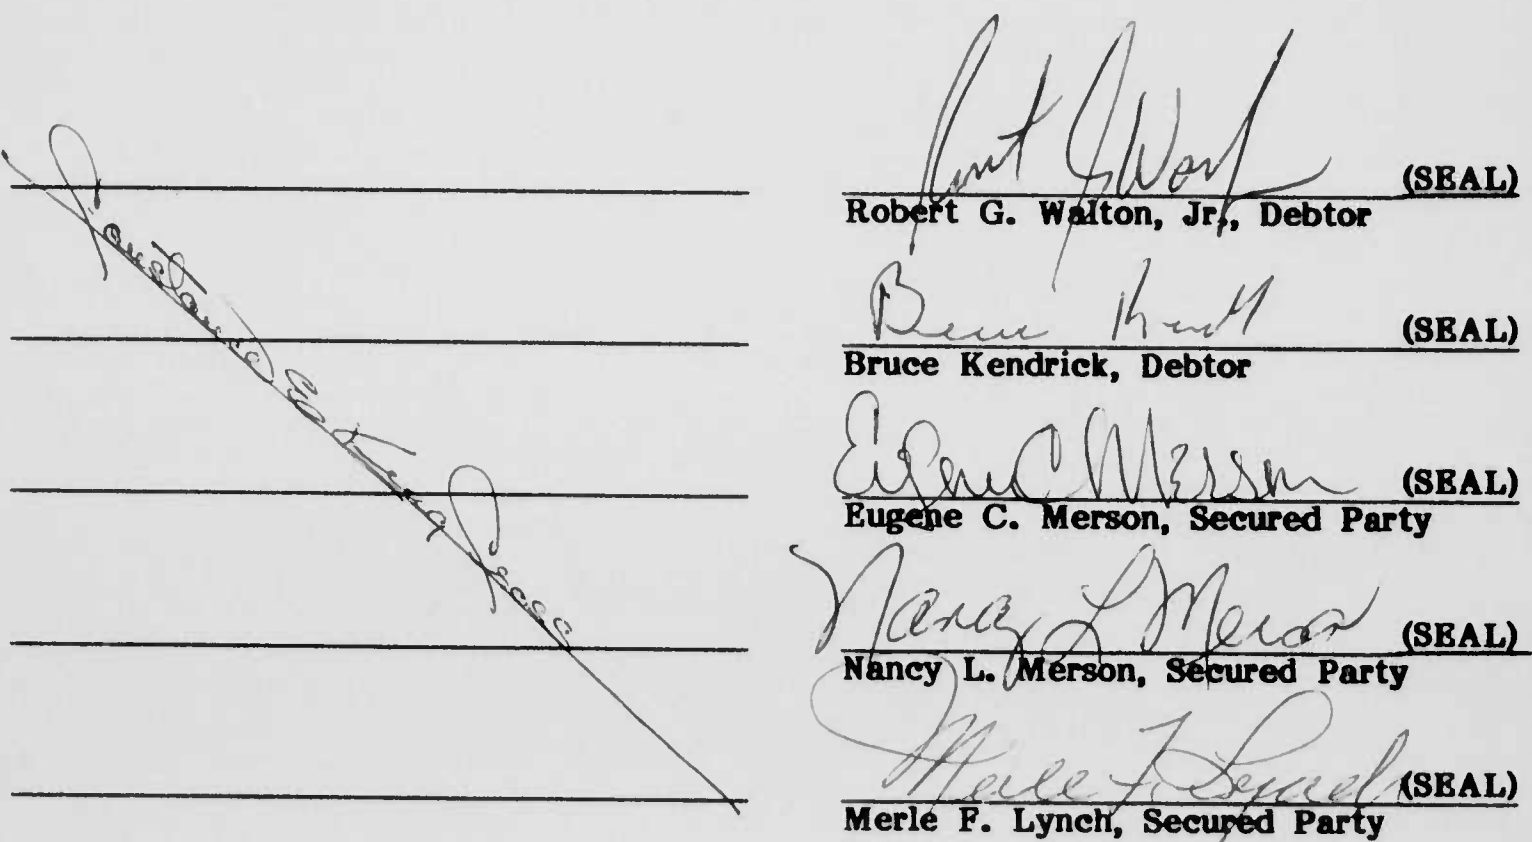 (SEAL)
Robert G. Walton, Jr., Debtor
Bruce Kendrick (SEAL)
Bruce Kendrick, Debtor
Eugene C Merson (SEAL)
Eugene C. Merson, Secured Party
Nancy L Merson (SEAL)
Nancy L. Merson, Secured Party
Merle F Lynch (SEAL)
Merle F. Lynch, Secured Party